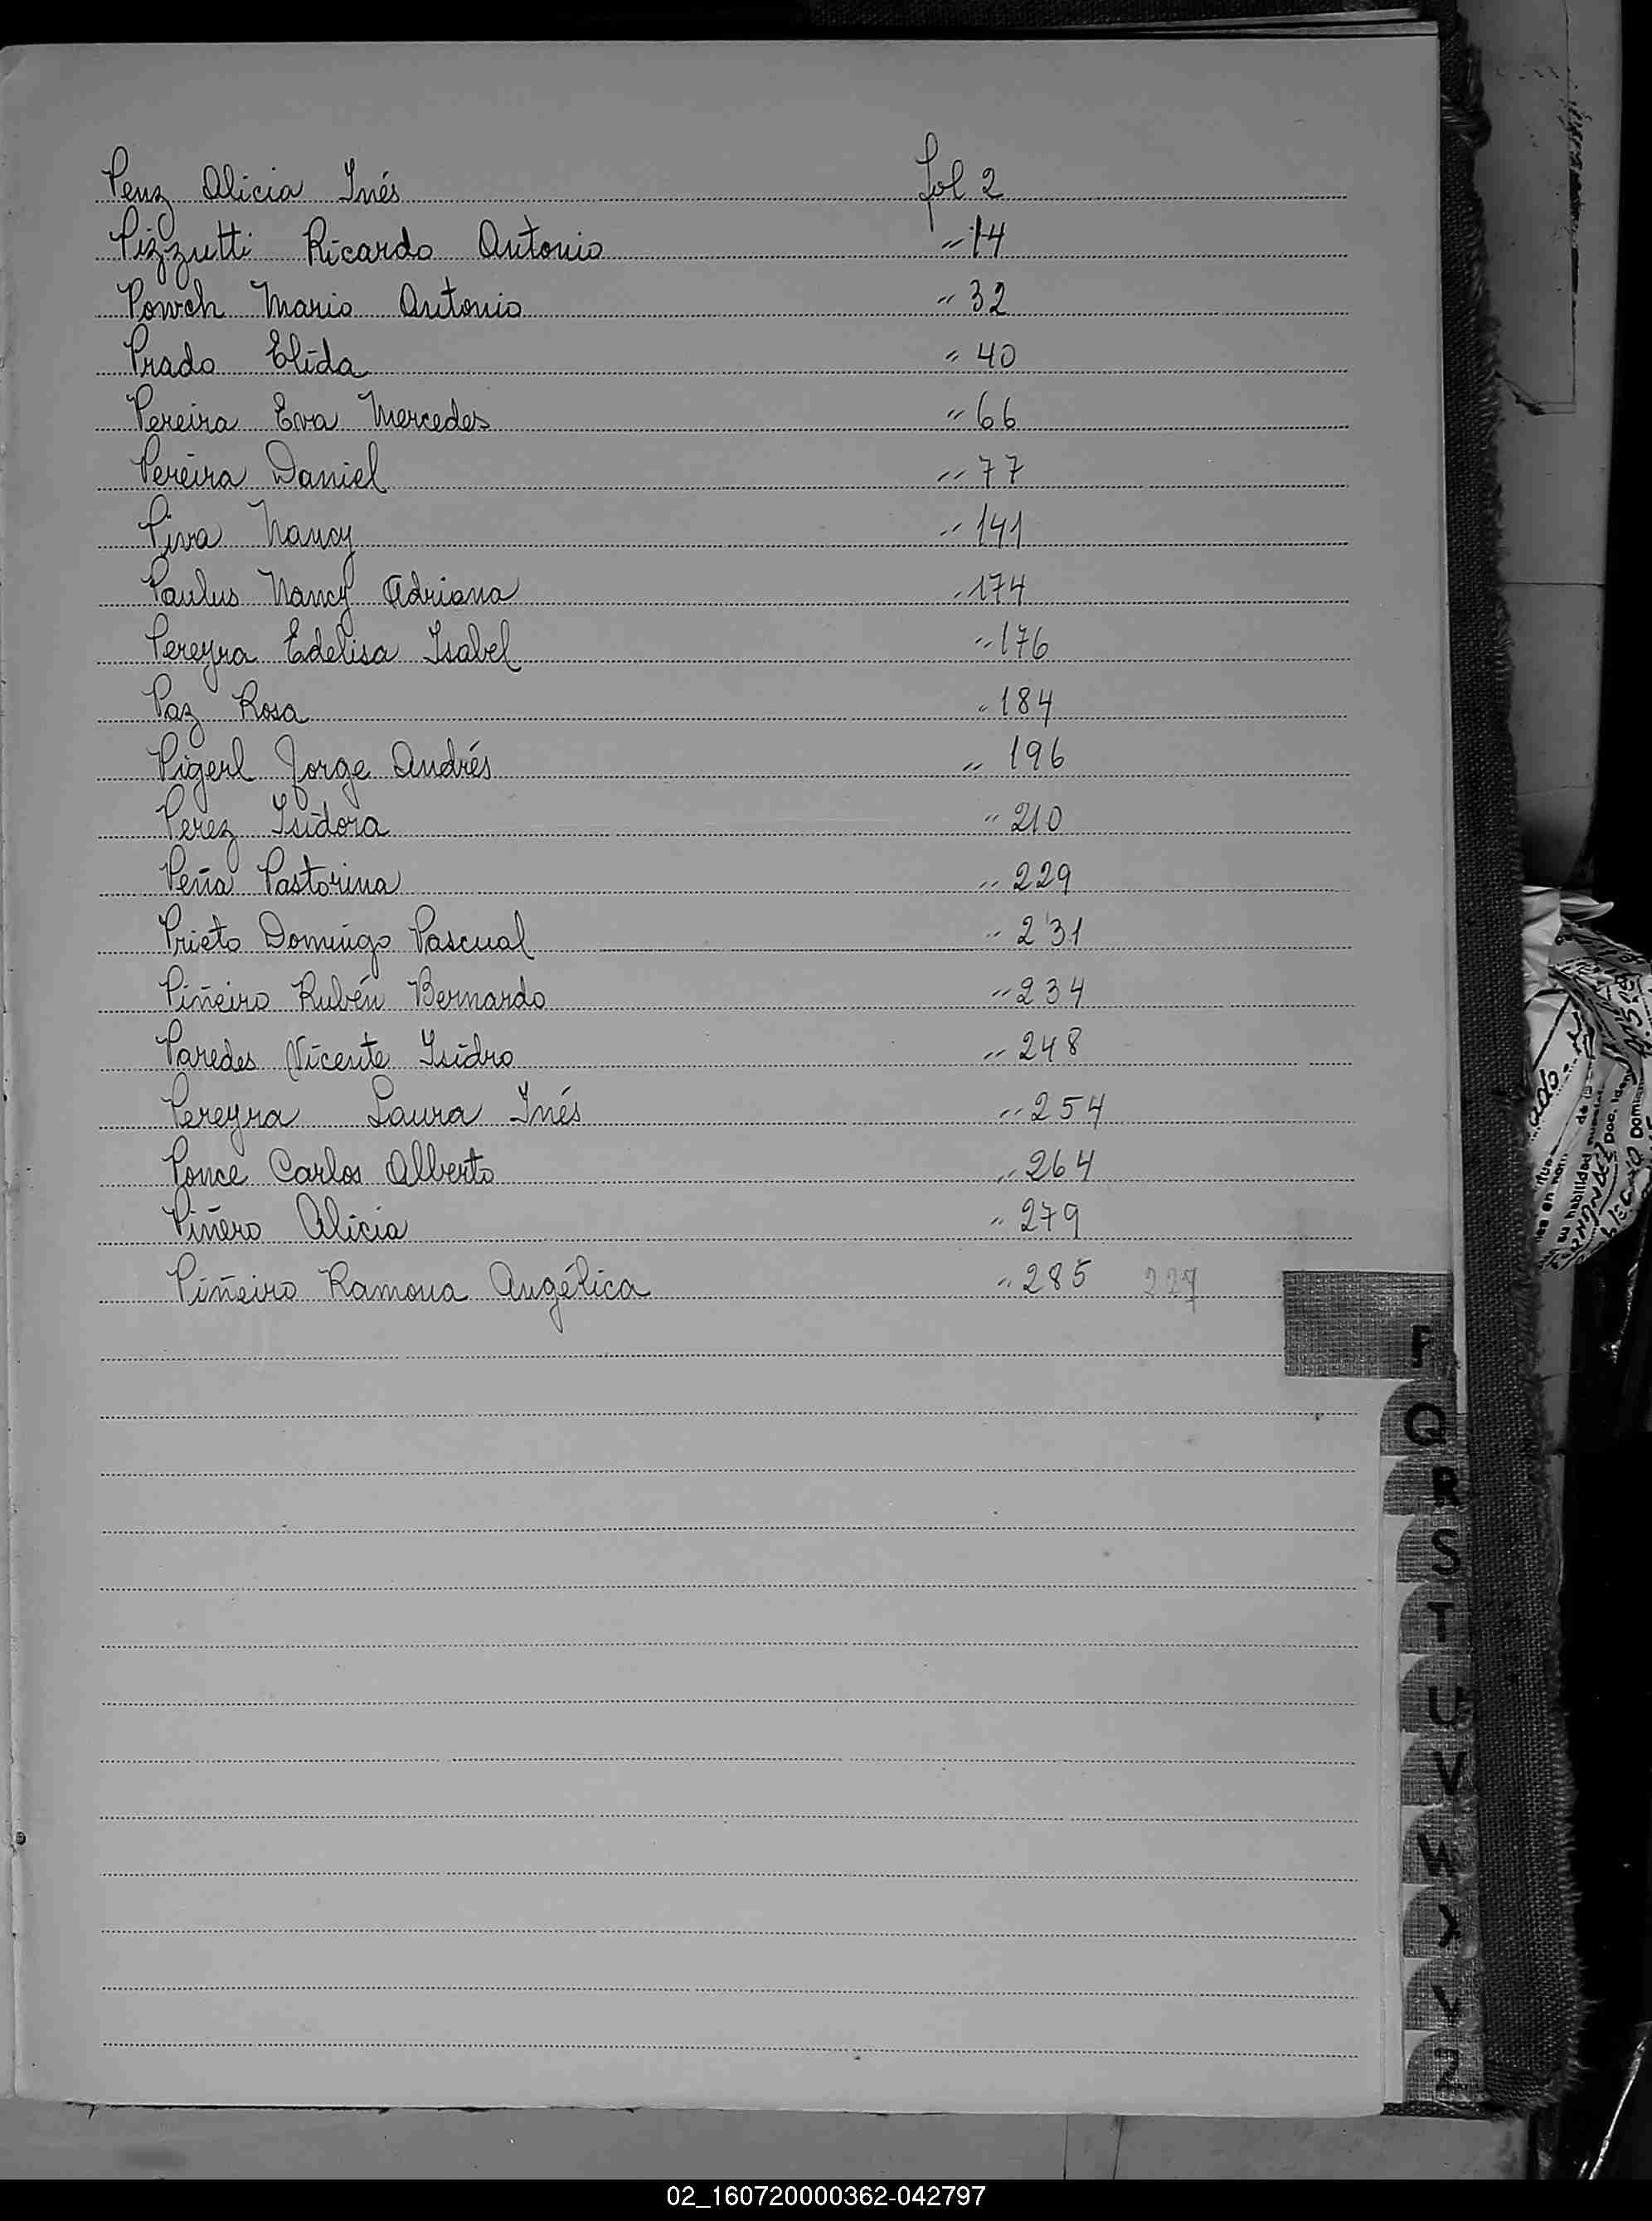 Penz Alicia Inés fol 2
Pizzutti Ricardo Antonio " 14
Powch Mario Antonio " 32
Prado Elida " 40
Pereira Eva Mercedes " 66
Pereira Daniel " 77
Piva Nancy " 141
Paulus Nancy Adriana " 174
Pereyra Edelisa Isabel " 176
Paz Rosa " 184
Pigerl Jorge Andrés " 196
Perez Isidora " 210
Peña Pastorina " 229
Prieto Domingo Pascual " 231
Piñeiro Rubén Bernardo " 234
Paredes Vicente Isidro " 248
Pereyra Laura Inés " 254
Ponce Carlos Alberto " 264
Piñero Alicia " 279
Piñeiro Ramona Angélica " 285
P
Q
R
S
T
U
V
W
X
Y
Z
02_160720000362-042797